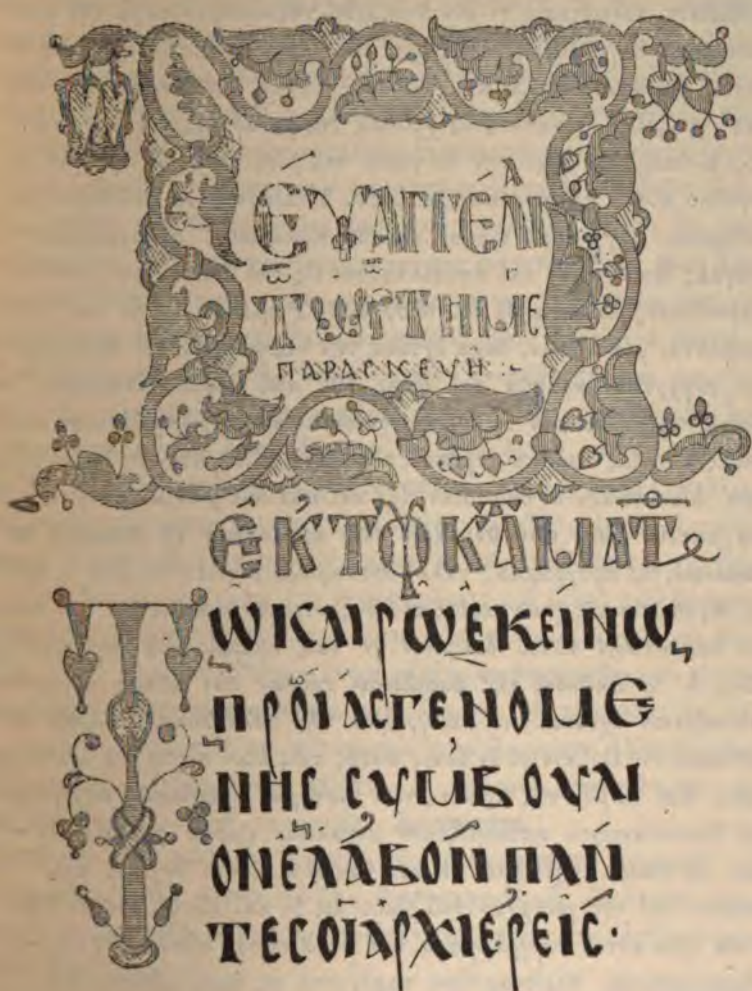 ΕΥΑΓΓΕΛΙΑ
ΤΗ ΜΕΓ
ΠΑΡΑCΚΕΥΗ :-
ἘΚ ΤΟΥ ΚΑΤΑ ΜΑΤΘ
ΤѠ ΚΑΙΡѠ ἘΚΕΙΝѠ,
ΠΡΟΪΑC ΓΕΝΟΜΕ
ΝΗC CΥΜΒΟΥΛΙ
ΟΝ ἘΛΑΒΟΝ ΠΑΝ
ΤΕC ΟΙ ΑΡΧΙΕΡΕΙC·